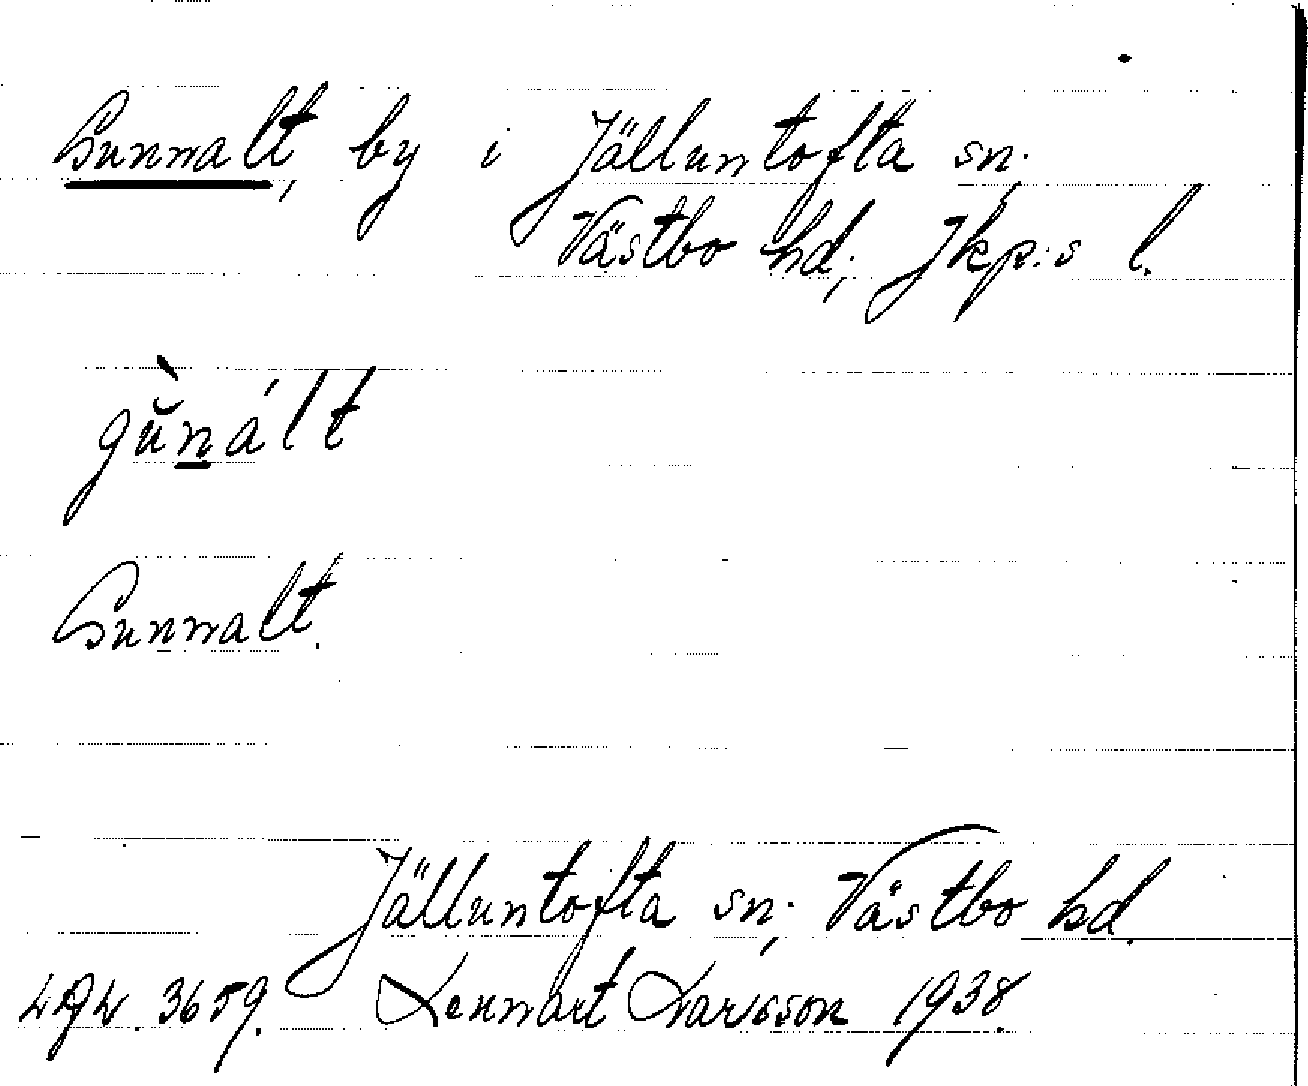 Gunnalt, by i Jälluntofta sn.
Västbo hd; Jkp:s l.
gŭ̀nált
Gunnalt.
Jälluntofta sn; Västbo hd.
3659. Lennart Larsson 1938.